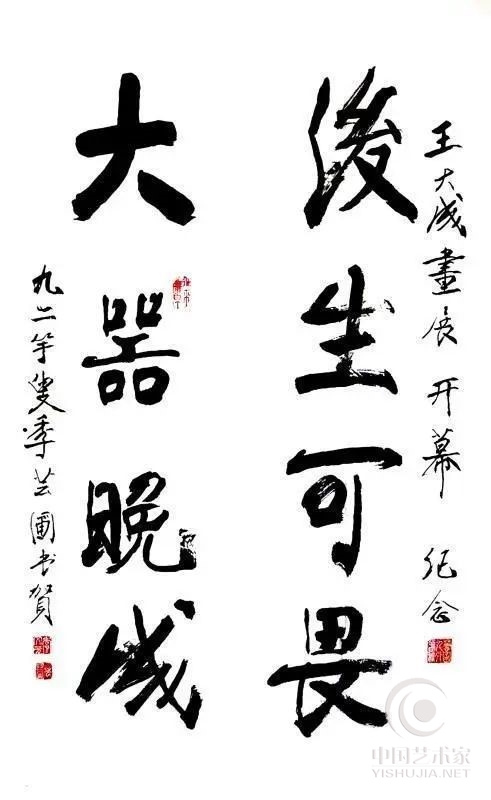 王大成畫展 开幕 纪念
後生可畏
大器晚成
九二叟季芸圃书賀
中国艺术家
YISHUJIA.NET